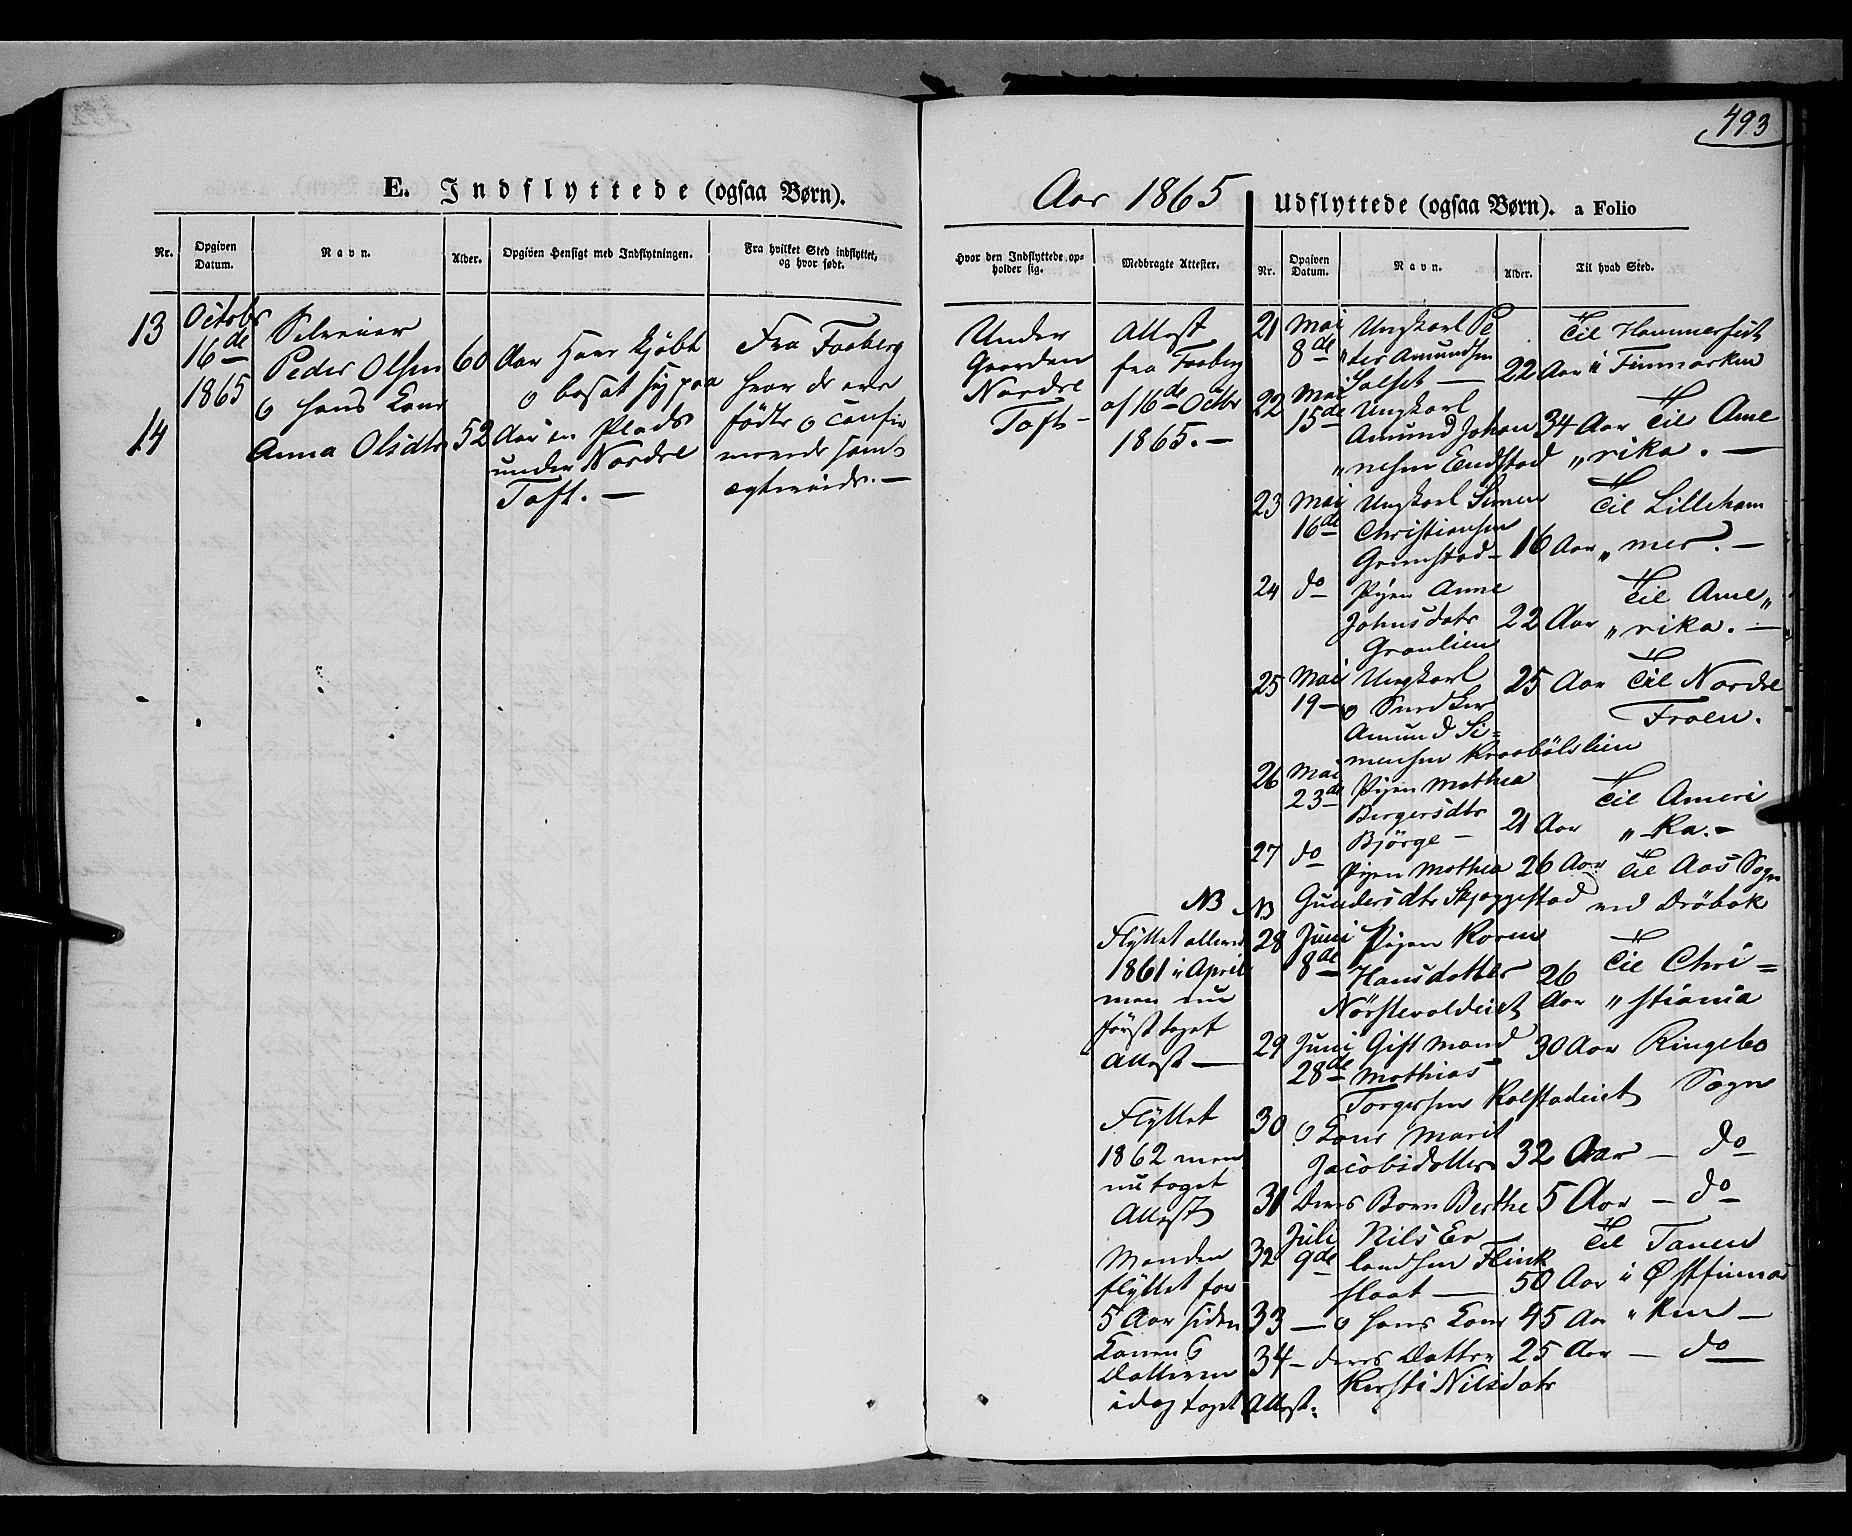 493
E. Indflyttede (ogsaa Børn).
Aar 1865
Udflyttede (ogsaa Børn). a Folio
Nr.
Opgiven Datum.
Navn.
Alder.
Opgiven Hensigt med Indflytningen.
Fra hvilket Sted indflyttet, og hvor født.
Hvor den Indflyttede opholder sig.
Medbragte Attester.
Nr.
Opgiven Datum.
Navn.
Alder.
Til hvad Sted.
13
Octobr
16de
1865
Peder Olsen
o hans Kone
60 Aar
Har kjøbt
o bosat sig paa
14
Anna Olsdtr
52 Aar
en Plads
under Nordre
Toft. —
Fra Faaberg
hvor de ere
født o confir
merede samt
ægteviede. —
Under
Gaarden
Nordre
Toft —
Attest
fra Faaberg
af 16de Octbr
1865. —
21 Mai Ungkarl Pe Til Hammerfest
8de „der Amundsen
Salset — 22 Aar i Finmarken
22 Mai
15de Ungkarl 34 Aar Til Ame
Amund Johan
„nesen Endstad „rika. —
23 Mai Ungkarl Simen Til Lilleham
16de Christiansen
Grimstad — 16 Aar „mer. —
24 do Pigen Anne Til Ame„
Johnsdatr 22 Aar „rika. —
Graulien
25 Mai Ungkarl 25 Aar Til Nordre
19 — o Snedker Froen.
Amund Si=
mensen Kraabølslien
26 Mai
23de Pigen Mathea Til Ameri
Birgersdtr 21 Aar „ka. —
Bjørge —
27 do Pigen Mathea 26 Aar Til Aas Sogn
NB NB Gundersdtr Skjæggestad ved Drøbak
28 Juni Pigen Karen Til Chri=
8de Hansdatter 26
Nørstevoldeiet Aar „stiania
Flyttet allered
1861 i April
men nu
først taget
Attest —
29 Juni Gift Mand 30 Aar Ringebo
28de Mathias Sogn
Torgersen Kolstadeiet
30 o Kone Marit
Jacobsdatter 32 Aar — do
31 Deres Barn Berthe 5 Aar — do
Flyttet
1862 men
nu taget
Attest
32 Juli Nils Er Til Tanen
9de landsen Flink
sloat — 50 Aar i Østfinmar
33 — o hans Kone 45 Aar „ken —
34 — deres Datter 25 Aar — do
Kersti Nilsdatr
Manden
flyttet for
5 Aar siden
Konen o
Datteren
idag taget Attest.